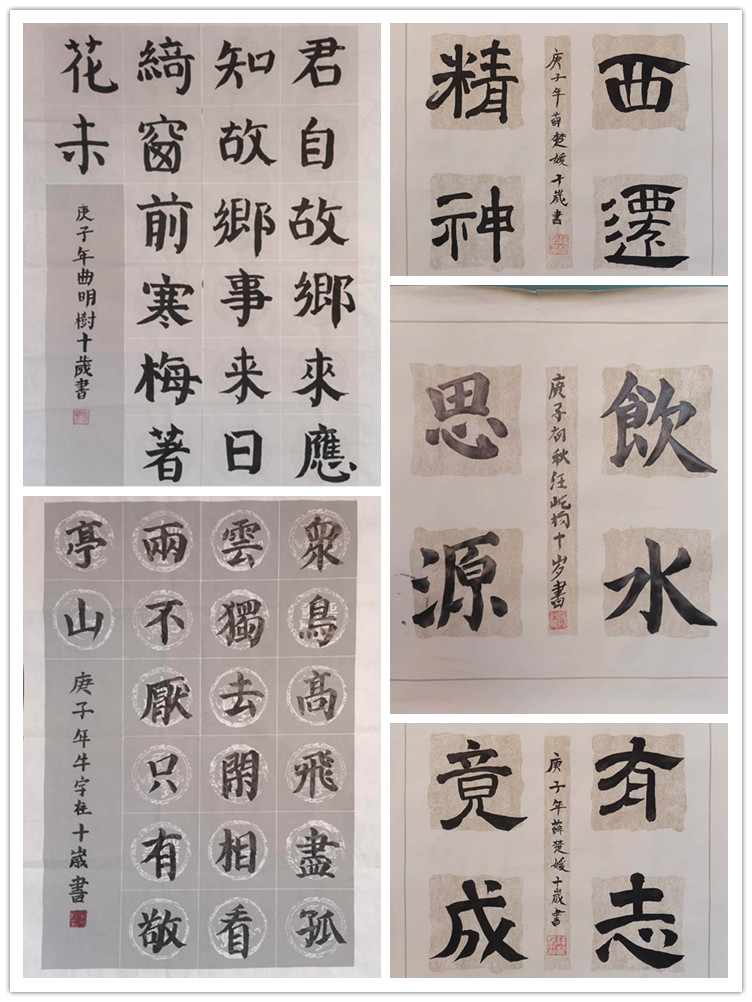 君自故鄉來應
知故鄉事来日
綺窗前寒梅著
花未
庚子年曲明樹十歲書
西遷
庚子年薛楚媛十歲書
精神
飲水
庚子初秋汪屹十岁書
思源
眾鳥高飛盡孤
雲獨去閑相看
兩不厭只有敬
亭山
庚子年牛宇在十歲書
有志
庚子年薛楚媛十歲書
竟成